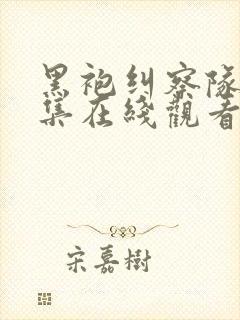 黑袍纠察队
集在綫觀看
宋嘉樹